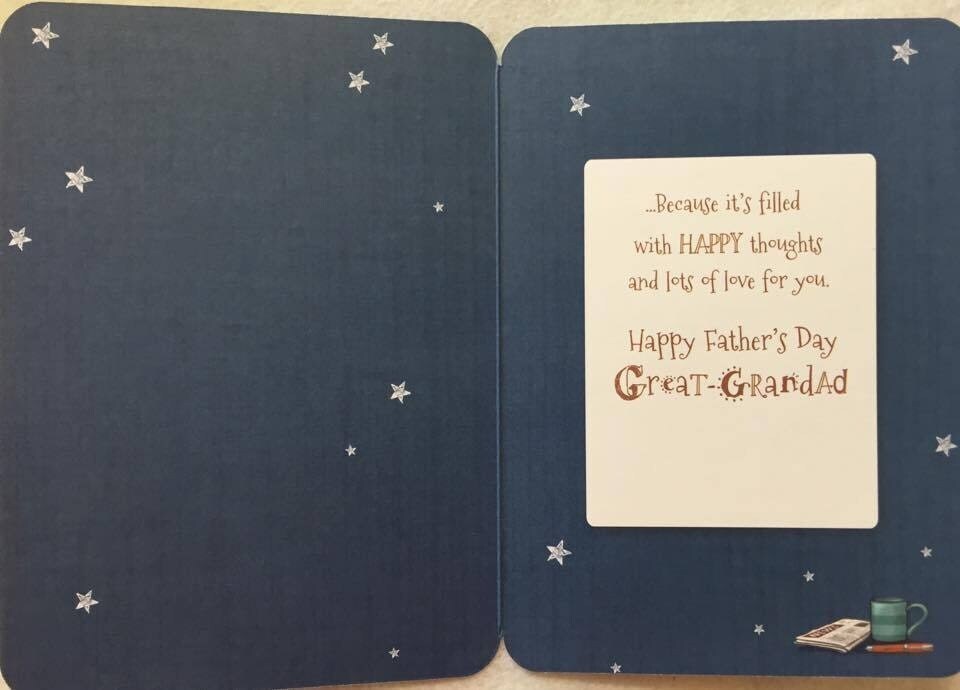 ...Because it's filled
with HAPPY thoughts
and lots of love for you.
Happy Father's Day
Great-Grandad
NEWS